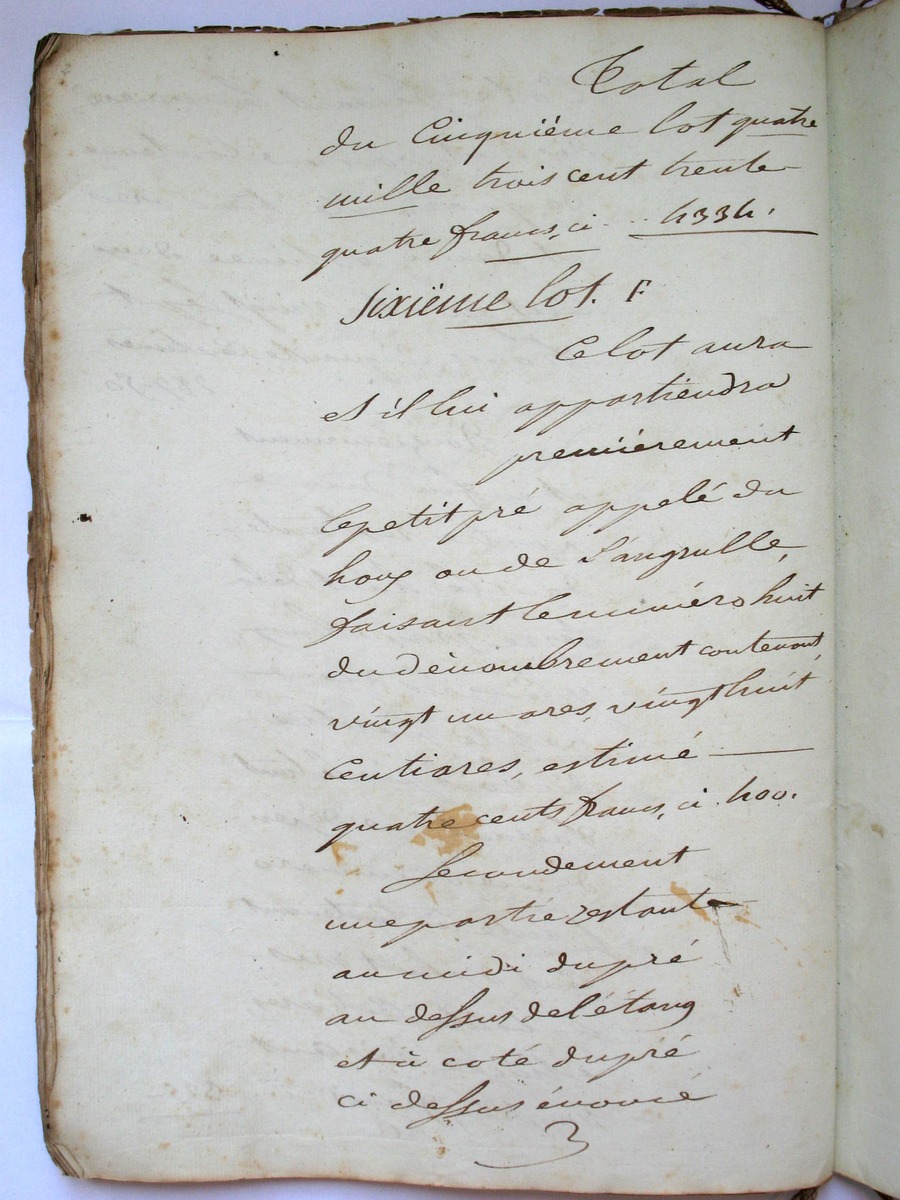 Total
du Cinquiéme lot quatre
mille trois cent trente
quatre francs, ci .. 4334.
Sixiëme lot. F
Ce lot aura
et il lui appartiendra
premiérement
le petit pré appelé du
houx ou de
faisant le numéro huit
du dénombrement contenant
vingt un ares, vingt huit
Centiares, estimé —
quatre cents francs, ci. 400.
Secondement
une partie restante
au midi du pré
au dessus de l'étang
et à coté du pré
ci dessus énoncé
3